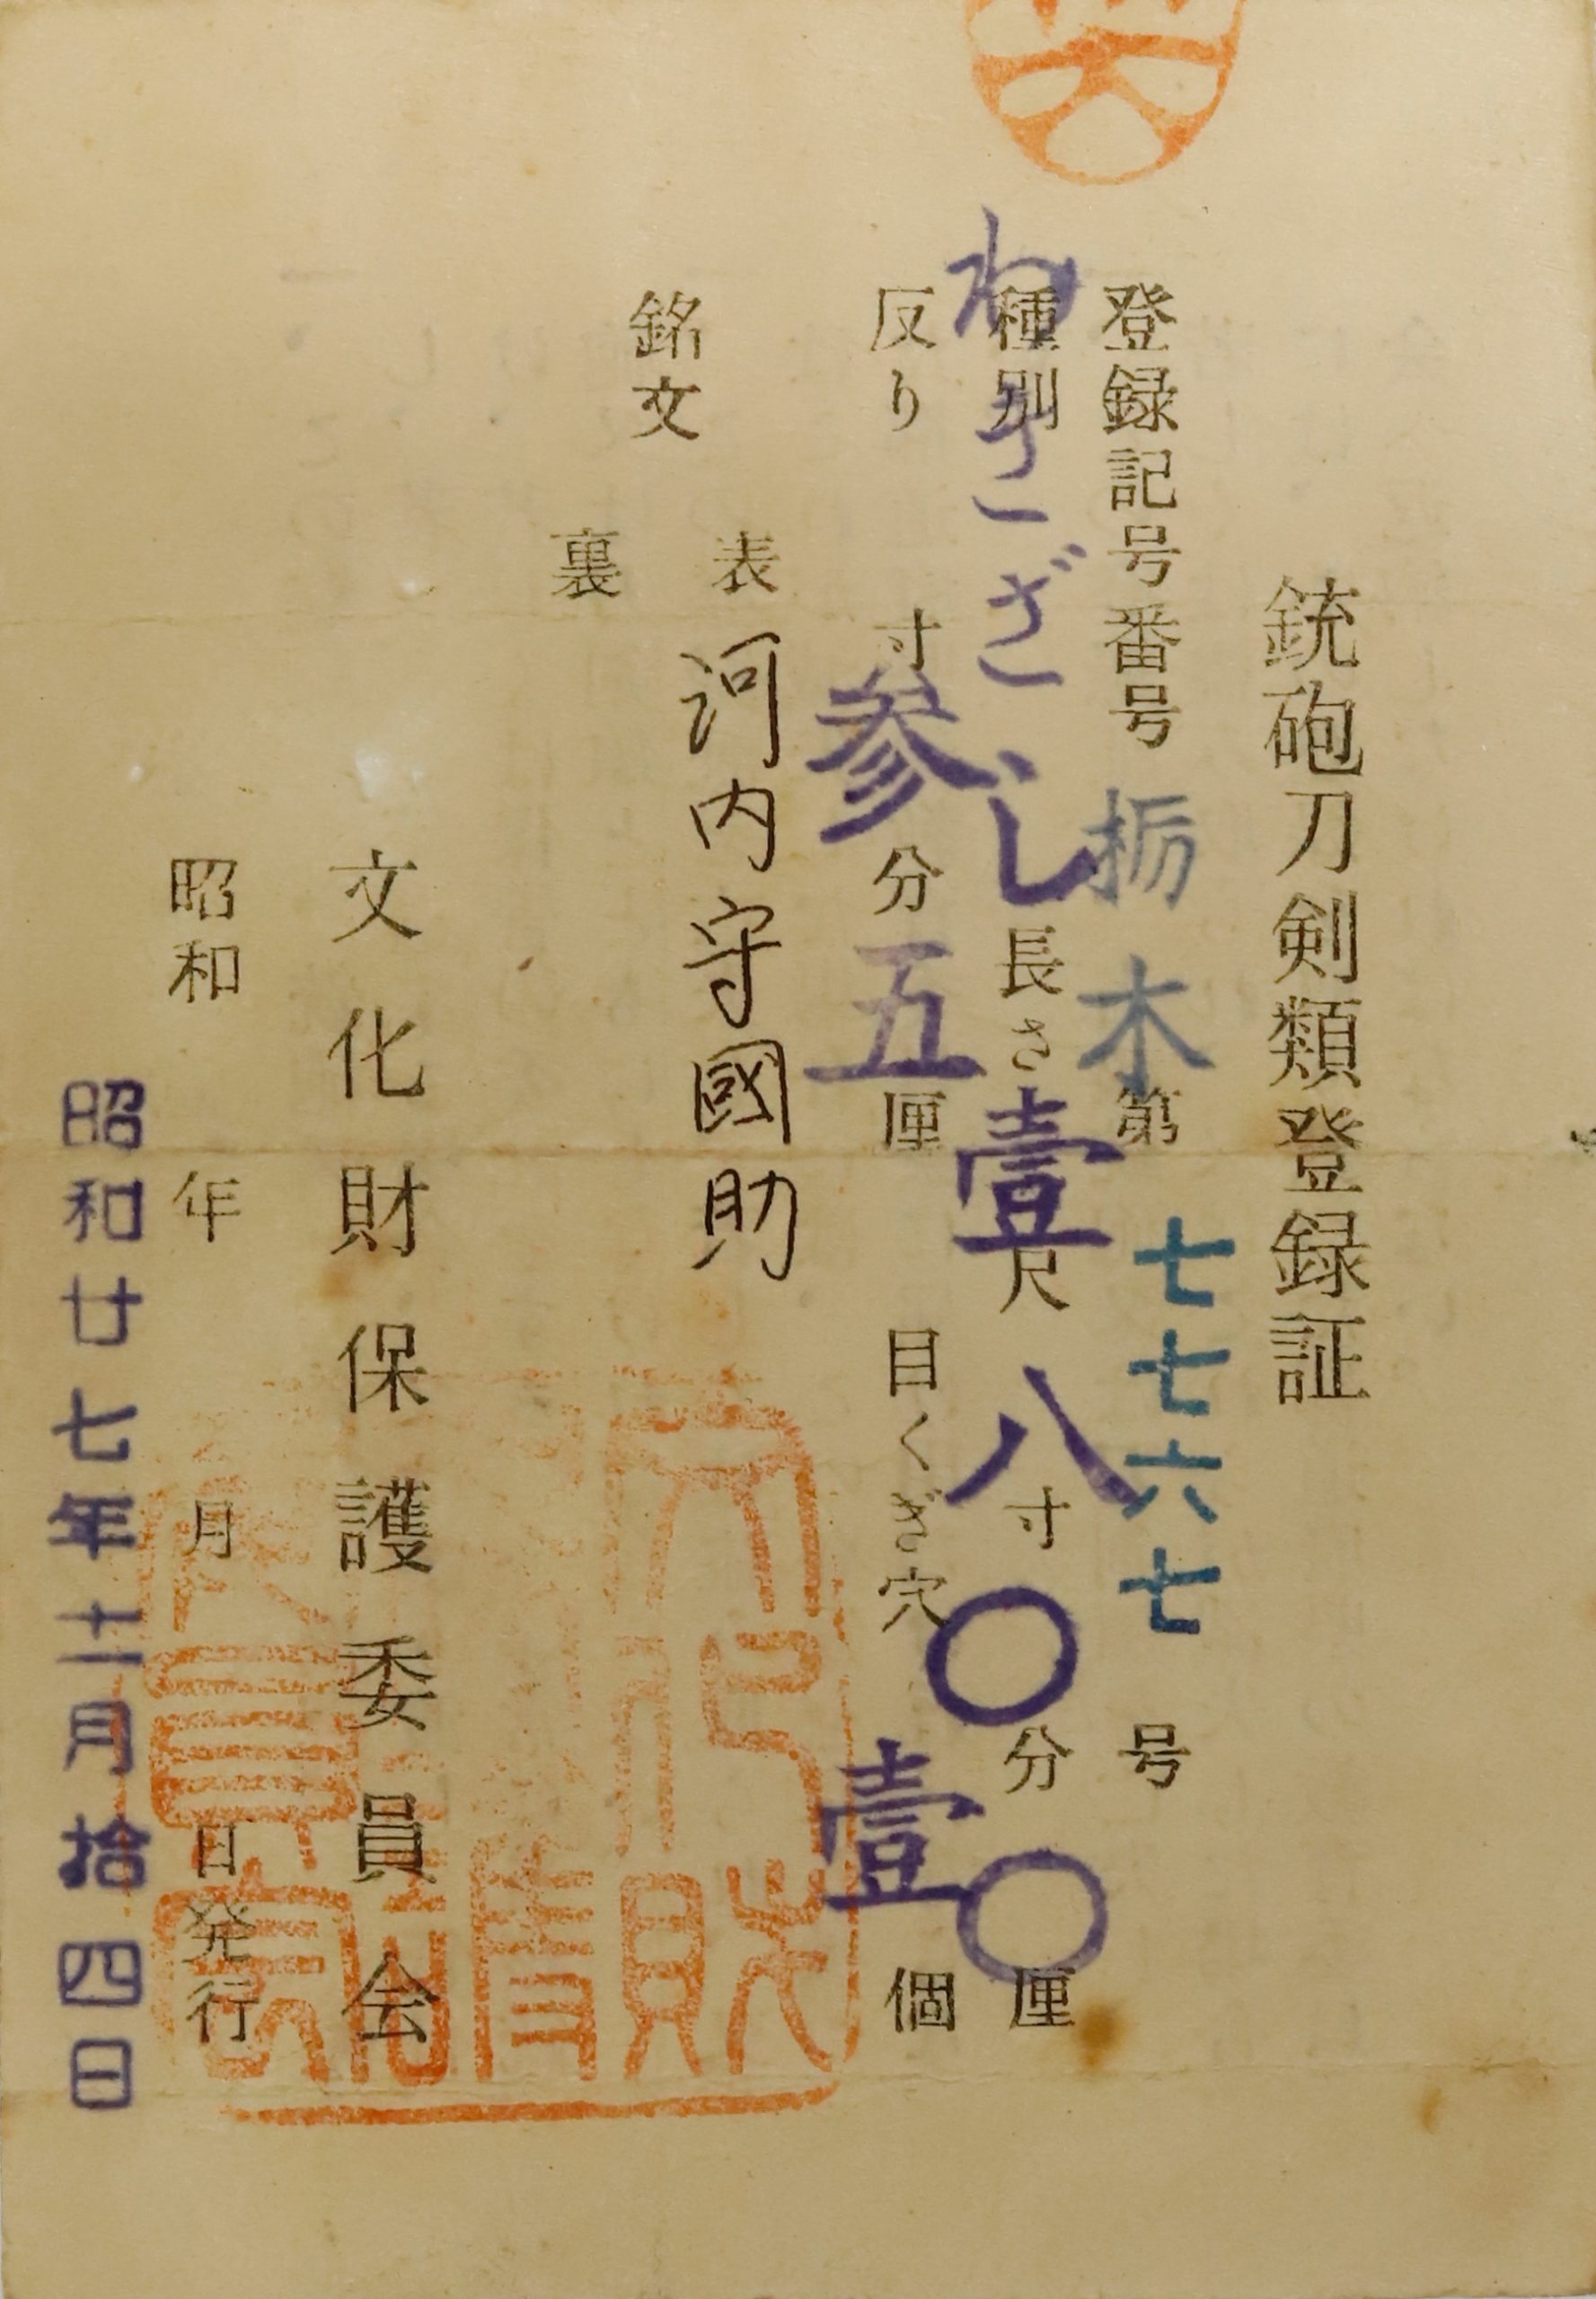 銃砲刀剣類登録証
登録記号番号 栃木 第 七七六七 号
種別 わきざし 長さ 壹 尺 八 寸 〇 分 〇 厘
反り 寸 参 分 五 厘 目くぎ穴 壹 個
銘文
表 河内守國助
裏
文化財保護委員会
昭和 年 月 日 発行
昭和廿七年十二月拾四日